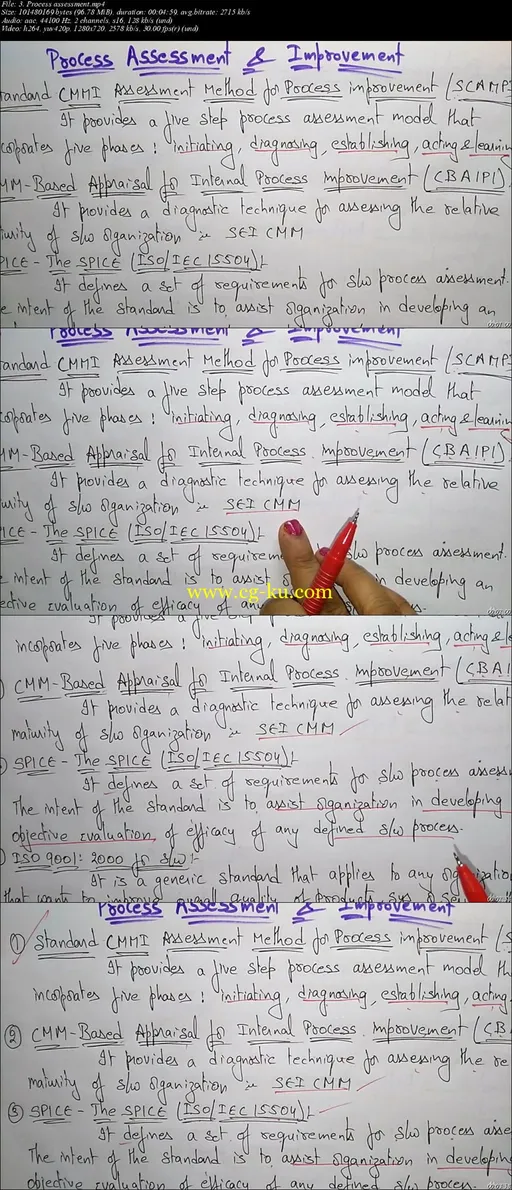 File: 3. Process assessment.mp4
Size: 101480169 bytes (96.78 MiB), duration: 00:04:59, avg.bitrate: 2715 kb/s
Audio: aac, 44100 Hz, 2 channels, s16, 128 kb/s (und)
Video: h264, yuv420p, 1280x720, 2578 kb/s, 30.00 fps(r) (und)
Process Assessment & Improvement
tandard CMMI Assessment Method for Process improvement (SCAMPI
It provides a five step process assessment model that
corporates five phases : initiating, diagnosing, establishing, acting & learning
MM-Based Appraisal for Internal Process Improvement (CBAIPI).
It provides a diagnostic technique for assessing the relative
turity of s/w organization in SEI CMM
PICE - The SPICE (ISO/IEC 15504) :-
It defines a set of requirements for s/w process assessment.
e intent of the standard is to assist organization in developing an
Process Assessment & Improvement
tandard CMMI Assessment Method for Process improvement (SCAMPI
It provides a five step process assessment model that
corporates five phases : initiating, diagnosing, establishing, acting & learning
MM-Based Appraisal for Internal Process Improvement (CBAIPI).
It provides a diagnostic technique for assessing the relative
turity of s/w organization in SEI CMM
ICE - The SPICE (ISO/IEC 15504) :-
It defines a set of requirem s/w process assessment.
e intent of the standard is to assist in developing an
ective evaluation of efficacy of any
www.cg-ku.com
It provides a five
incorporates five phases : initiating, diagnosing, establishing, acting & le
CMM-Based Appraisal for Internal Process Improvement (CBAI
It provides a diagnostic technique for assessing the relat
maturity of s/w organization in SEI CMM
SPICE - The SPICE (ISO/IEC 15504) :-
It defines a set of requirements for s/w process assess
The intent of the standard is to assist organization in developing
objective evaluation of efficacy of any defined s/w process.
ISO 9001 : 2000 for s/w :-
It is a generic standard that applies to any organization
that want to improve overall quality of products, sys
Process Assessment & Improvement
① Standard CMMI Assessment Method for Process improvement (S
It provides a five step process assessment model th
incorporates five phases : initiating, diagnosing, establishing, acting
② CMM-Based Appraisal for Internal Process Improvement (CB
It provides a diagnostic technique for assessing the re
maturity of s/w organization in SEI CMM
③ SPICE - The SPICE (ISO/IEC 15504) :-
It defines a set of requirements for s/w process asse
The intent of the standard is to assist organization in developing
objective evaluation of efficacy of any defined s/w process.